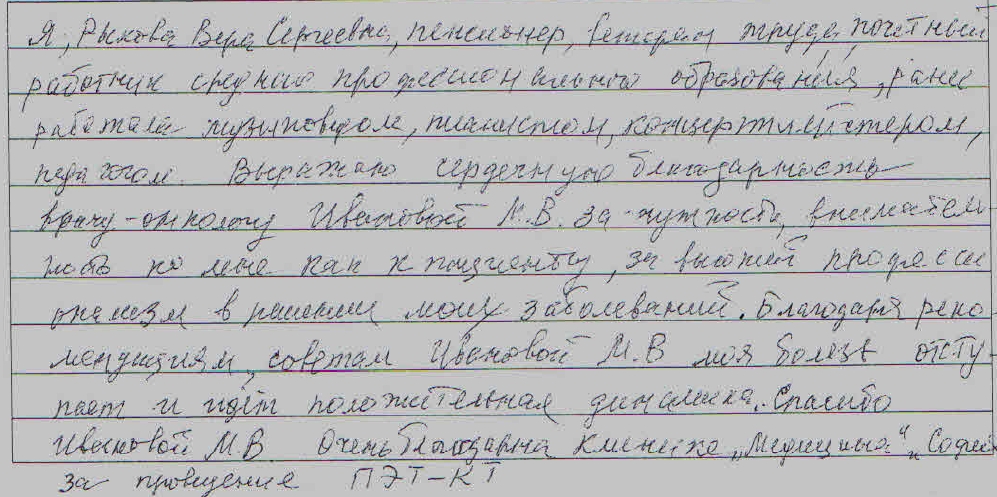 Я, Рыкова Вера Сергеевна, пенсионер, ветеран труда, почетный
работник среднего профессионального образования, ранее
работала музыковедом, пианистом, концертмейстером,
педагогом. Выражаю сердечную благодарность
врачу-онкологу Ивановой М.В. за чуткость, вниматель
ность ко мне как к пациенту, за высокий професси
онализм в решении моих заболеваний. Благодаря реко
мендациям, советам Ивановой М.В моя болезь отсту
пает и идёт положительная динамика. Спасибо
Ивановой М.В Очень благодарна клинике „Медицина“,
за проведение ПЭТ-КТ